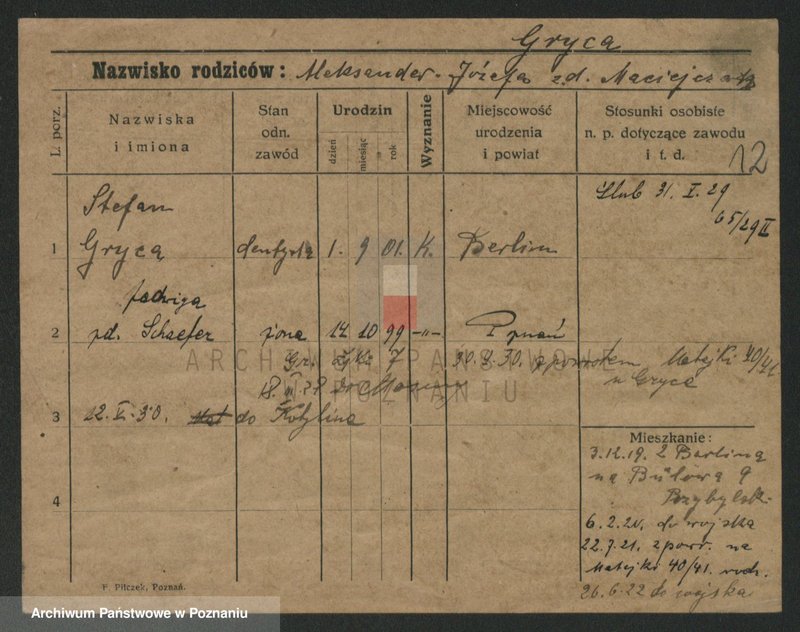 Gryca
Nazwisko rodziców: Aleksander - Józefa zd. Maciejczak
L. porz.
Nazwiska
i imiona
Stan
odn.
zawód
Urodzin
dzień
miesiąc
rok
Wyznanie
Miejscowość
urodzenia
i powiat
Stosunki osobiste
n. p. dotyczące zawodu
i t. d.
12
Ślub 31. I. 29
65/29 II
Stefan
1 Gryca dentysta 1. 9 01. K. Berlin
Jadwiga
2 zd. Schaefer żona 14 10 99 -"- Poznań
7 30. 30. z powrotem Matejki 40/41
u Gryca
ARCHIWUM PAŃSTWOWE
W POZNANIU
18. 28 do
3 12. V. 30. do Kobylina
Mieszkanie:
3.12.19. z Berlina
na Bülowa 9
4
6. 2. 20. do wojska
22.7.21. z powr. na
Matejki 40/41. rodz.
26.6.22 do wojska
F. Pilczek, Poznań.
Archiwum Państwowe w Poznaniu